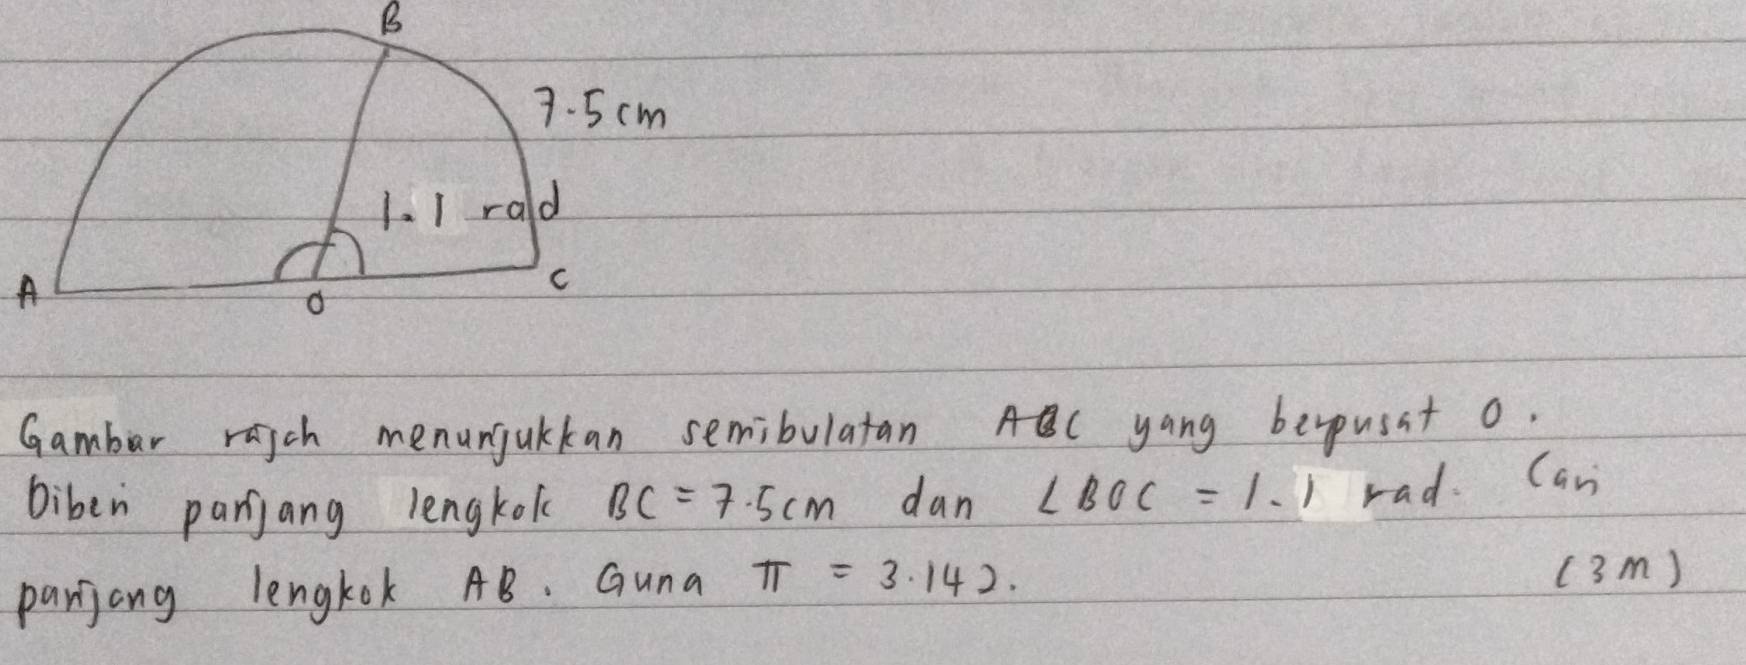 B
7.5 cm
1.1 rad
A
O
C
Gambar rajah menunjukkan semibulatan ABC yang berpusat O.
Diberi panjang lengkok BC = 7.5cm dan ∠BOC = 1.1 rad. Cari
panjang lengkok AB. Guna π = 3.142. (3m)